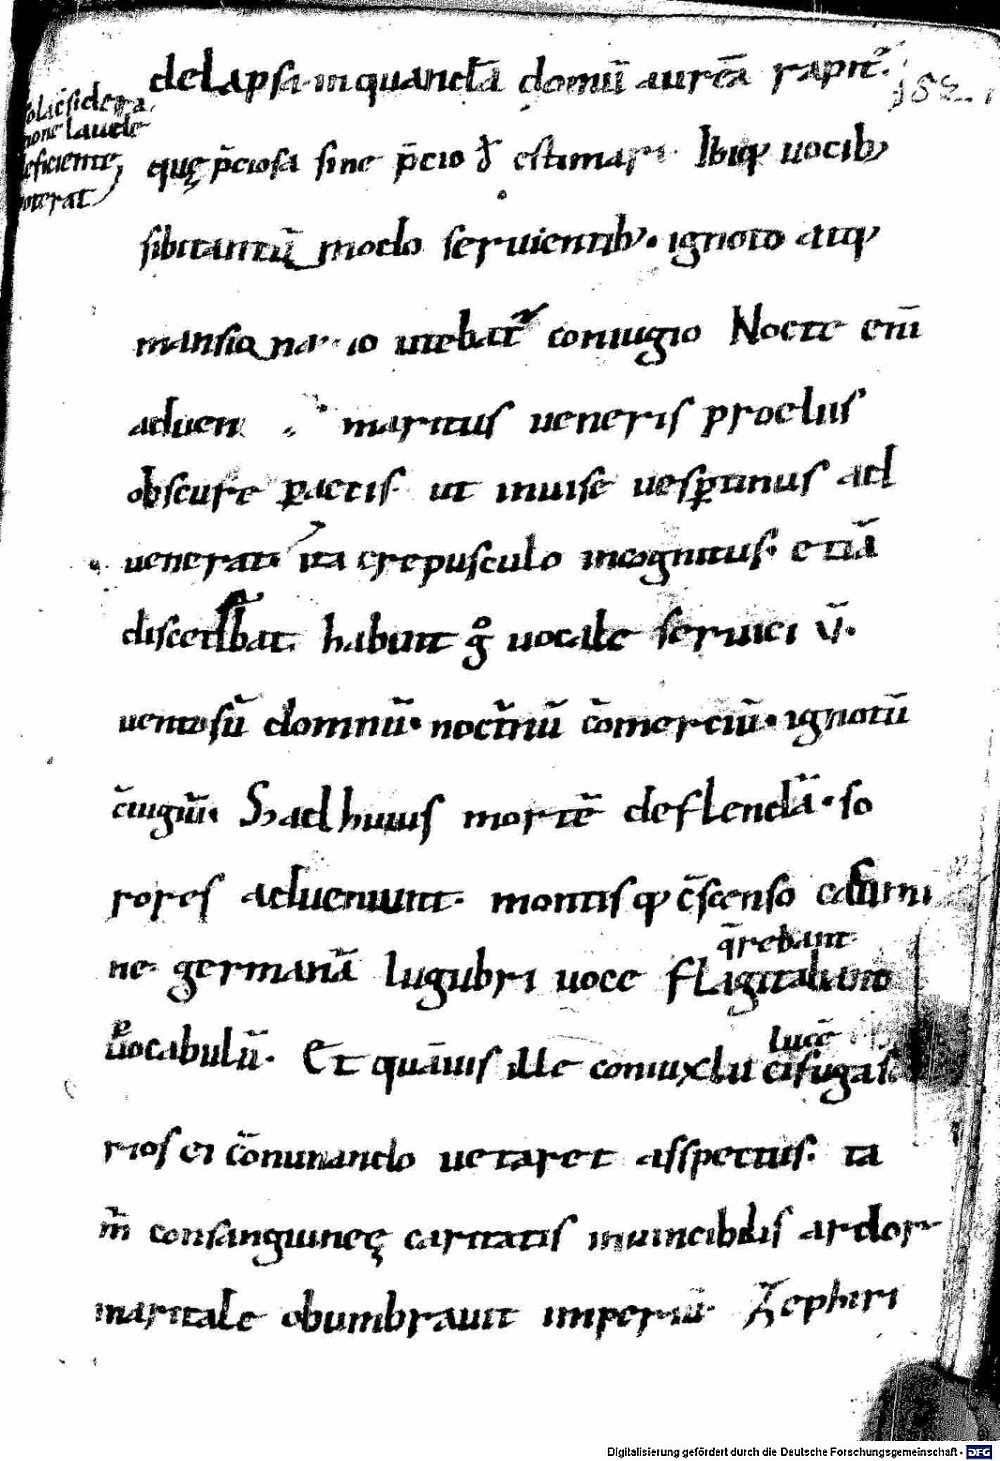 delapsa in quandā domū aureā rapit᷑.
152.
sidera
laude
deficiente
poterat
quę p̄ciosa sine p̄cio ÷ estimari. Ibiq; uocib;
sibi tantū modo seruientib;. ignoto atq;
mansionario utebat᷑ coniugio Nocte enī
aduen maritus ueneris proelus
obscure ꝑactis. ut inuise uesꝑtinus ad
uenerat. ita crepusculo incognitus. etiā
discedebat. habuit gͦ uocale seruici ū.
uentosū domnū. noct̄nū c̄merciū. ignotū
c̄iugiū. S; ad huius mortē deflendā. so
rores adueniunt. montisq; c̄scenso cacumi
ne. germanū lugubri uoce flagitabant
q̄rebant
uocabulū. Et quāuis ille coniux luci fugas
lucē
rios ei c̄minando uetaret asspectus. ta
m̄ consanguineę caritatis inuincibilis ardor
maritale obumbrauit imperiū. Zephiri
Digitalisierung gefördert durch die Deutsche Forschungsgemeinschaft - DFG